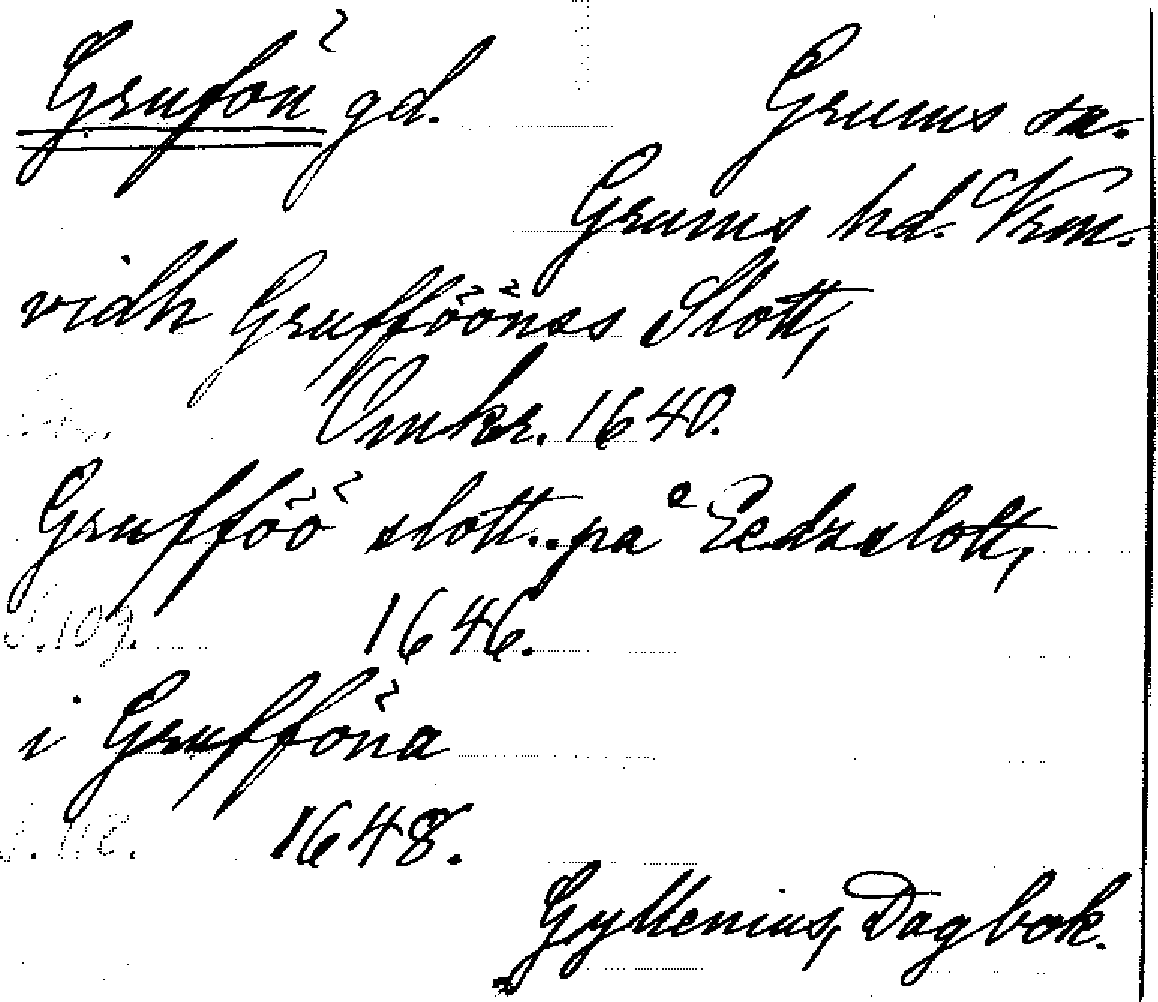 Grufön gd. Grums sn.
Grums hd. Vrm.
vidh Grufföönss Slott,
Omkr. 1640.
Grufföö slott.. på Eedzslott,
S. 109. 1646.
i Grufföna
S. 112. 1648.
Gyllenius, Dagbok.